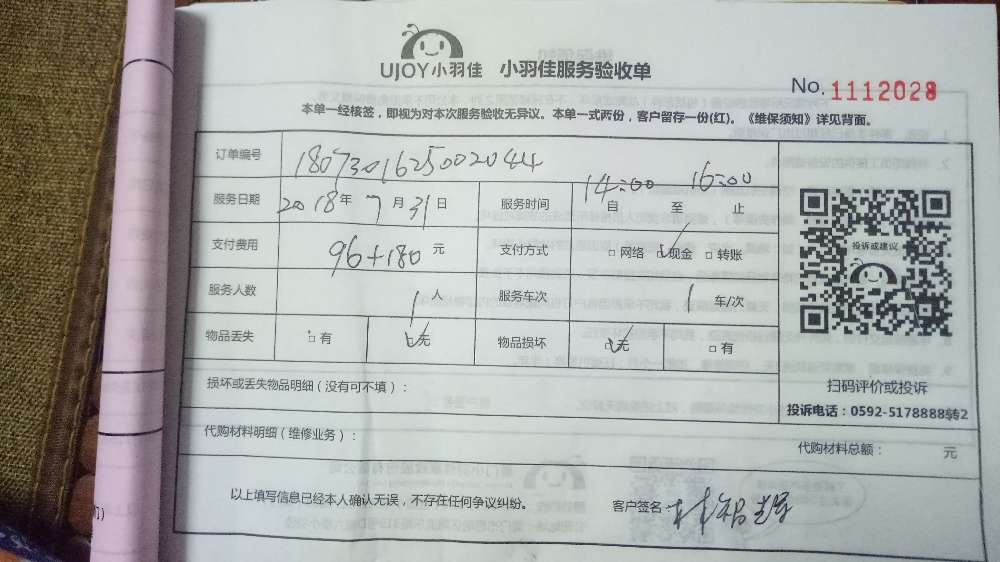 UJOY小羽佳 小羽佳服务验收单
No. 1112028
本单一经核签，即视为对本次服务验收无异议。本单一式两份，客户留存一份(红)。《维保须知》详见背面。
订单编号 1807301625002044
服务日期 2018年7月31日 服务时间 14:00自 至 16:00止
支付费用 96+180元 支付方式 □网络 ☑现金 □转账
投诉或建议
服务人数 1人 服务车次 1车/次
物品丢失 □有 ☑无 物品损坏 ☑无 □有
损坏或丢失物品明细（没有可不填）：
扫码评价或投诉
投诉电话：0592-5178888转2
代购材料明细（维修业务）：
代购材料总额： 元
以上填写信息已经本人确认无误，不存在任何争议纠纷。 客户签名